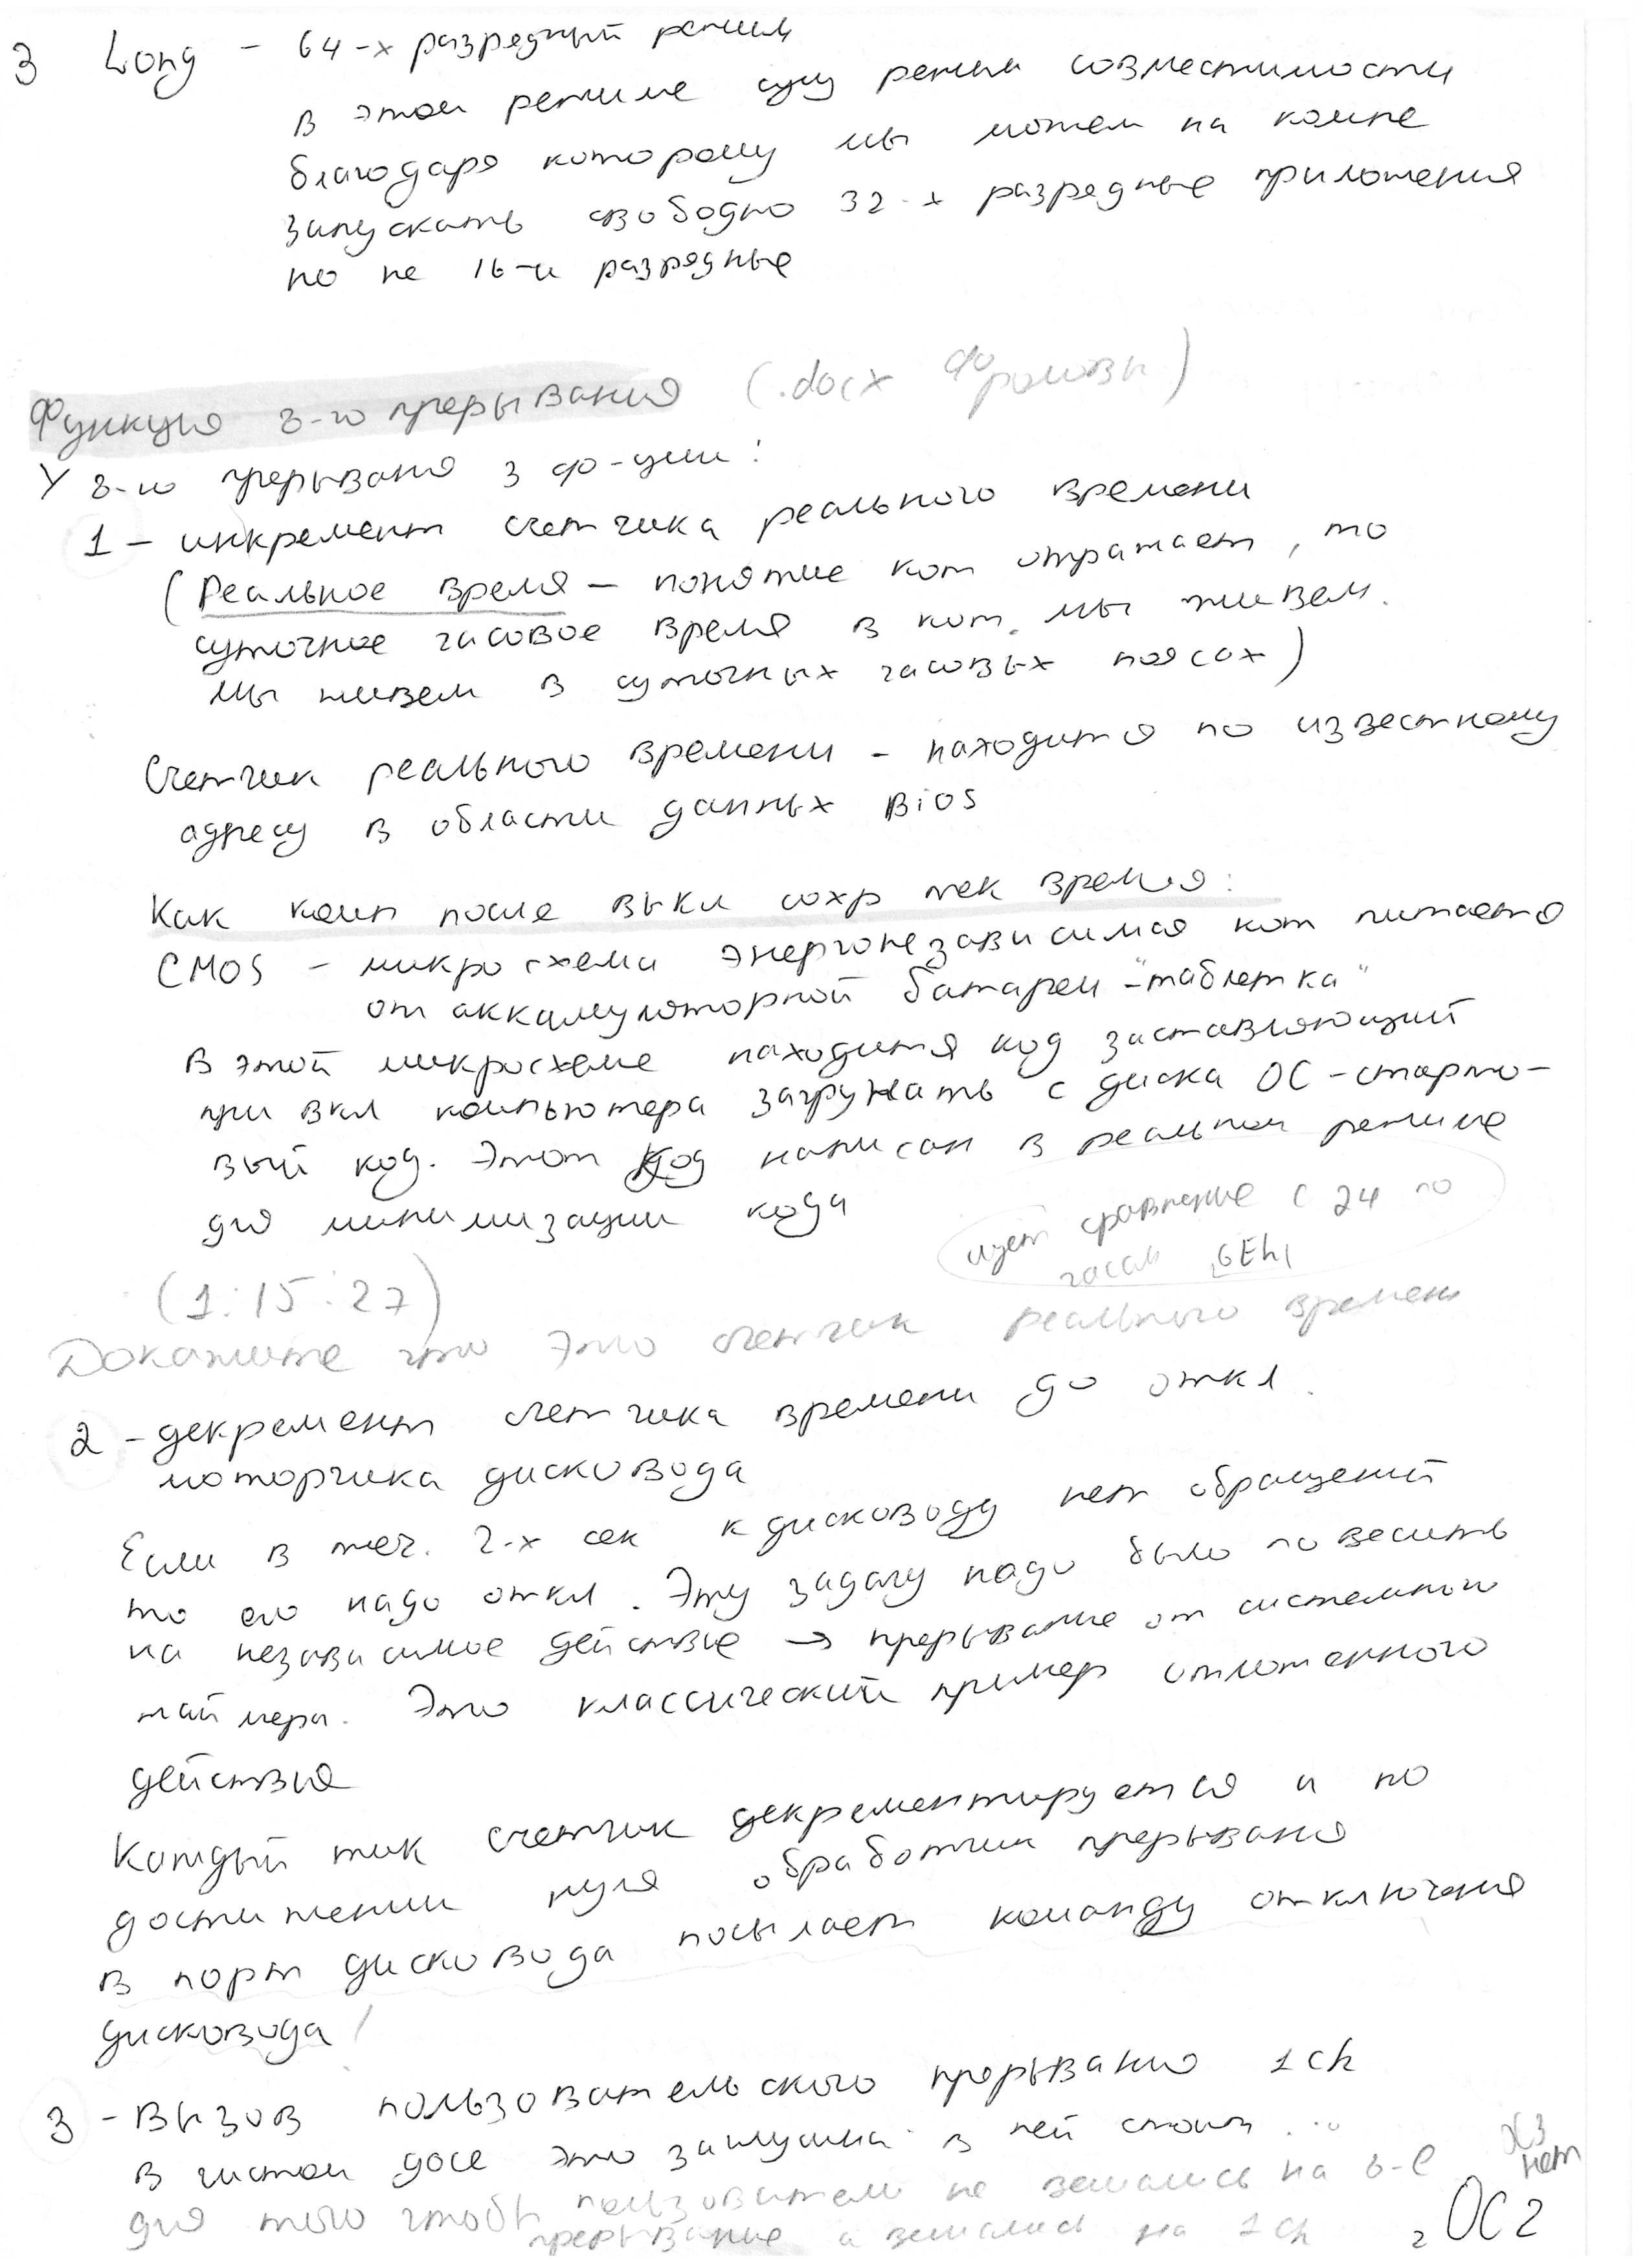 3 Long - 64-х разрядный режим
в этом режиме сущ режим совместимости
благодаря которому мы можем на компе
запускать свободно 32-х разрядные приложения
но не 16-и разрядные
Функция 8-го прерывания (.docx Ф роматы)
У 8-го прерывания 3 ф-ции:
1 - инкремент счетчика реального времени
(Реальное время - понятие кот отражает, то
суточное часовое время в кот. мы живем.
Мы живем в суточных часовых поясах)
Счетчик реального времени - находится по известному
адресу в области данных BiOS
Как комп после выкл сохр тек время:
CMOS - микросхема энергонезависимая кот питается
от аккамуляторной батареи - "таблетка"
В этой микросхеме находится код заставляющий
при вкл компьютера загружать с диска ОС - старто-
вый код. Этот код написан в реальном режиме
для минимизации кода
идет сравнение с 24 по
часам 6Eh
(1:15:27)
Докажите что это счетчик реального времени
2 - декремент счетчика времени до откл.
моторчика дисковода
Если в теч. 2-х сек к дисководу нет обращений
то его надо откл. Эту задачу надо было повесить
на независимое действие → прерывание от системного
таймера. Это классический пример отложенного
действия
Каждый тик счетчик декрементируется и по
достижении нуля обработчик прерывания
в порт дисковода посылает команду отключения
дисковода
3 - вызов пользовательского прерывания 1Ch
в чистом досе это заглушка в ней стоит ...
хз
нет
для того чтобы пользователи не вешались на 8-е
прерывание а вешались на 1Ch
2 ОС2